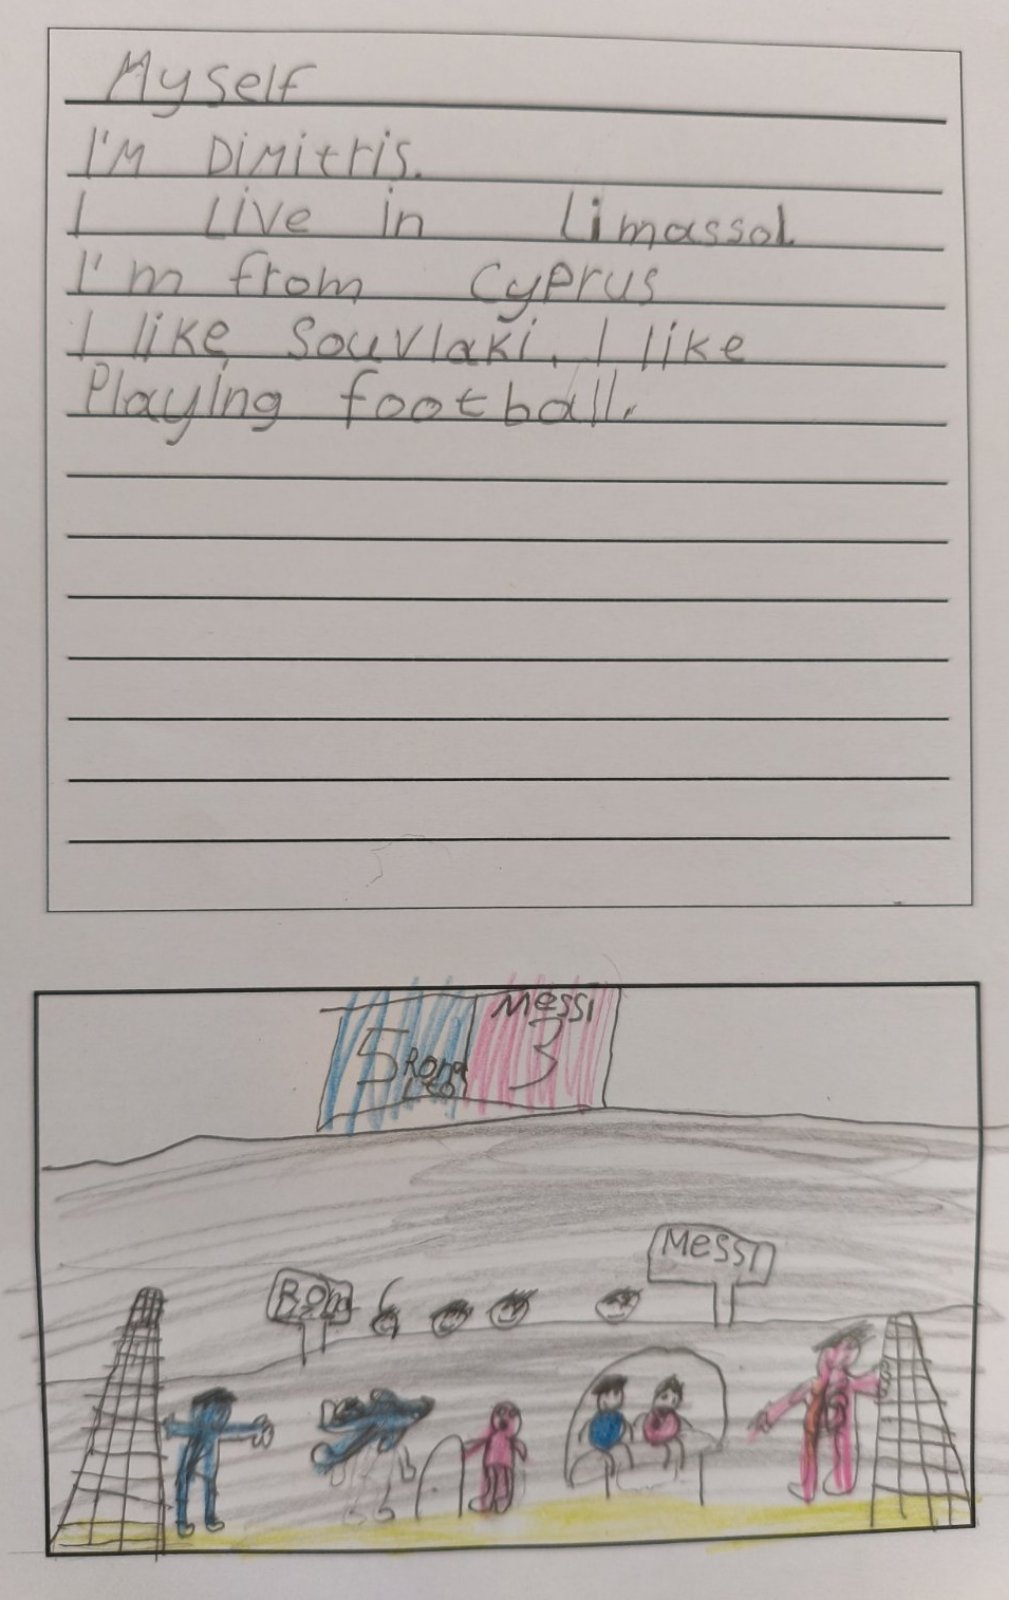 Myself
I'M DiMitris.
I Live in Limassol
I'm from Cyprus
I like Souvlaki. I like
Playing football.
Messi
5 3
Messi